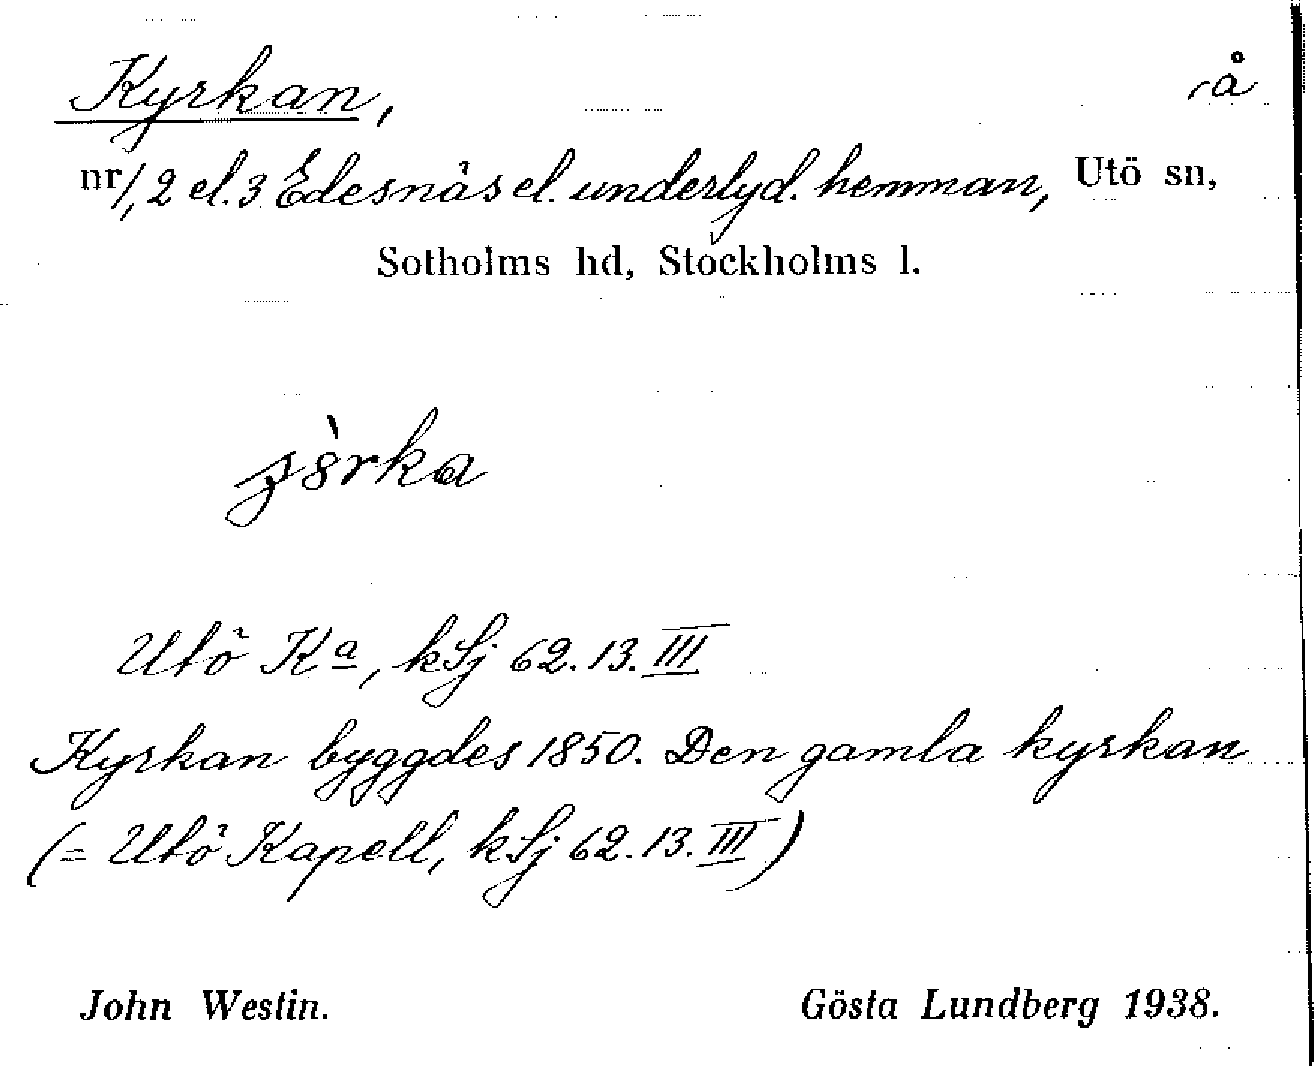 Kyrkan, å
nr 1, 2 el. 3 Edesnäs el. underlyd. hemman, Utö sn,
Sotholms hd, Stockholms l.
Utö Kª, kSj 62.13.III
Kyrkan byggdes 1850. Den gamla kyrkan
(= Utö Kapell, kSj 62.13.III)
John Westin. Gösta Lundberg 1938.